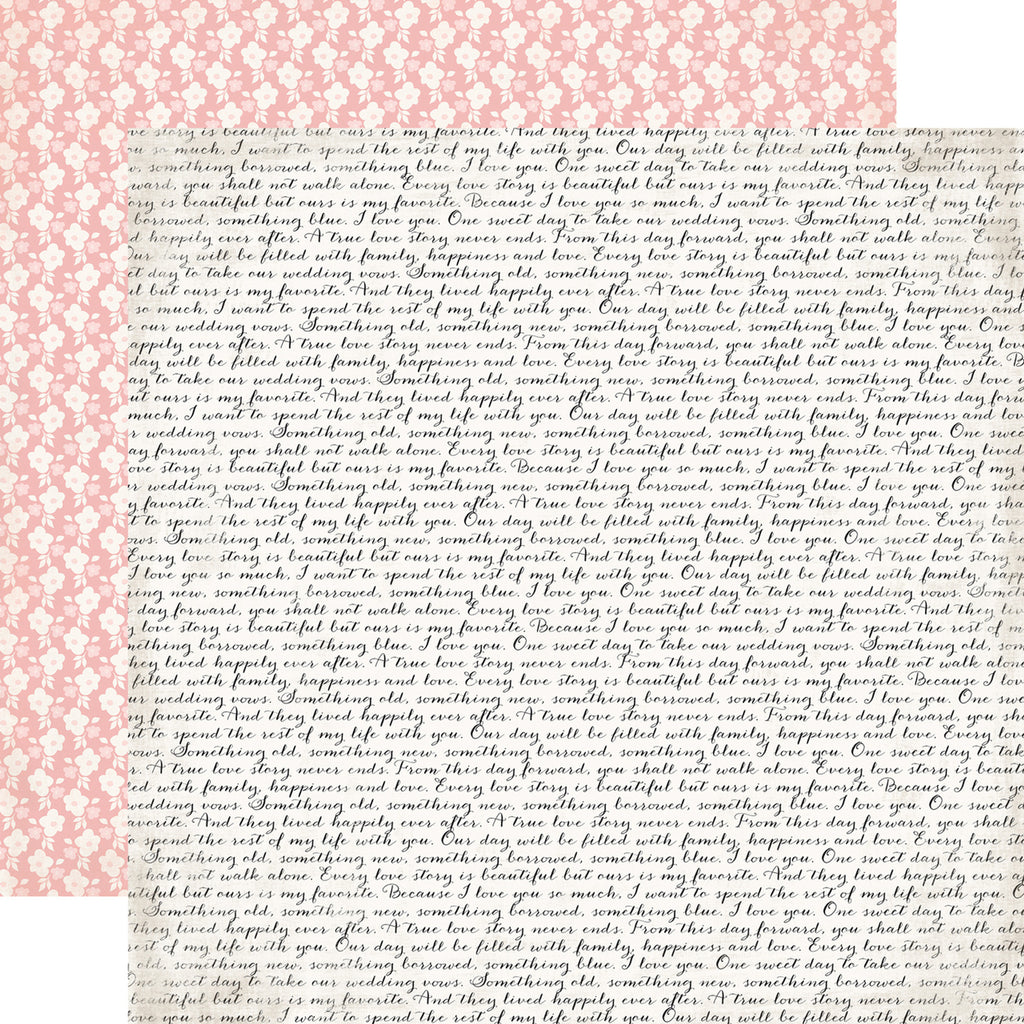 ve story is beautiful but ours is my favorite. And they lived happily ever after. A true love story never en
u so much, I want to spend the rest of my life with you. Our day will be filled with family, happiness an
w, something borrowed, something blue. I love you. One sweet day to take our wedding vows. Something old
ward, you shall not walk alone. Every love story is beautiful but ours is my favorite. And they lived happ
ory is beautiful but ours is my favorite. Because I love you so much, I want to spend the rest of my life w
borrowed, something blue. I love you. One sweet day to take our wedding vows. Something old, something
d happily ever after. A true love story never ends. From this day forward, you shall not walk alone. Every
Our day will be filled with family, happiness and love. Every love story is beautiful but ours is my favorite
et day to take our wedding vows. Something old, something new, something borrowed, something blue. I lo
l but ours is my favorite. And they lived happily ever after. A true love story never ends. From this day f
so much, I want to spend the rest of my life with you. Our day will be filled with family, happiness and
e our wedding vows. Something old, something new, something borrowed, something blue. I love you. One s
appily ever after. A true love story never ends. From this day forward, you shall not walk alone. Every lov
day will be filled with family, happiness and love. Every love story is beautiful but ours is my favorite. B
ay to take our wedding vows. Something old, something new, something borrowed, something blue. I love y
ut ours is my favorite. And they lived happily ever after. A true love story never ends. From this day forw
much, I want to spend the rest of my life with you. Our day will be filled with family, happiness and lov
r wedding vows. Something old, something new, something borrowed, something blue. I love you. One swee
ay forward, you shall not walk alone. Every love story is beautiful but ours is my favorite. And they lived
ove story is beautiful but ours is my favorite. Because I love you so much, I want to spend the rest of my
r wedding vows. Something old, something new, something borrowed, something blue. I love you. One swee
y favorite. And they lived happily ever after. A true love story never ends. From this day forward, you sha
t to spend the rest of my life with you. Our day will be filled with family, happiness and love. Every love
ows. Something old, something new, something borrowed, something blue. I love you. One sweet day to take
Every love story is beautiful but ours is my favorite. And they lived happily ever after. A true love story
I love you so much, I want to spend the rest of my life with you. Our day will be filled with family, happ
ing new, something borrowed, something blue. I love you. One sweet day to take our wedding vows. Someth
day forward, you shall not walk alone. Every love story is beautiful but ours is my favorite. And they liv
y love story is beautiful but ours is my favorite. Because I love you so much, I want to spend the rest of m
mething borrowed, something blue. I love you. One sweet day to take our wedding vows. Something old, so
hey lived happily ever after. A true love story never ends. From this day forward, you shall not walk alone
filled with family, happiness and love. Every love story is beautiful but ours is my favorite. Because I lov
ur wedding vows. Something old, something new, something borrowed, something blue. I love you. One swe
my favorite. And they lived happily ever after. A true love story never ends. From this day forward, you sh
nt to spend the rest of my life with you. Our day will be filled with family, happiness and love. Every lov
vows. Something old, something new, something borrowed, something blue. I love you. One sweet day to tak
r. A true love story never ends. From this day forward, you shall not walk alone. Every love story is beaut
ed with family, happiness and love. Every love story is beautiful but ours is my favorite. Because I love yo
wedding vows. Something old, something new, something borrowed, something blue. I love you. One sweet d
avorite. And they lived happily ever after. A true love story never ends. From this day forward, you shall
o spend the rest of my life with you. Our day will be filled with family, happiness and love. Every love st
s. Something old, something new, something borrowed, something blue. I love you. One sweet day to take ou
shall not walk alone. Every love story is beautiful but ours is my favorite. And they lived happily ever a
utiful but ours is my favorite. Because I love you so much, I want to spend the rest of my life with you. O
s. Something old, something new, something borrowed, something blue. I love you. One sweet day to take ou
they lived happily ever after. A true love story never ends. From this day forward, you shall not walk alo
rest of my life with you. Our day will be filled with family, happiness and love. Every love story is beauti
old, something new, something borrowed, something blue. I love you. One sweet day to take our wedding v
One sweet day to take our wedding vows. Something old, something new, something borrowed, something b
beautiful but ours is my favorite. And they lived happily ever after. A true love story never ends. From th
love you so much, I want to spend the rest of my life with you. Our day will be filled with family, happin